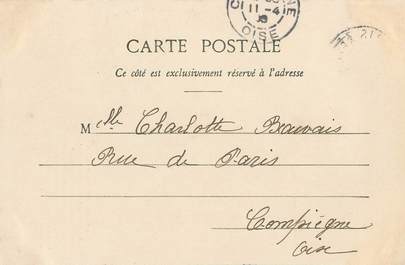 11-4
OISE
CARTE POSTALE
Ce côté est exclusivement réservé à l'adresse
Mlle Charlotte Beauvais
Rue de Paris
Compiègne
Oise